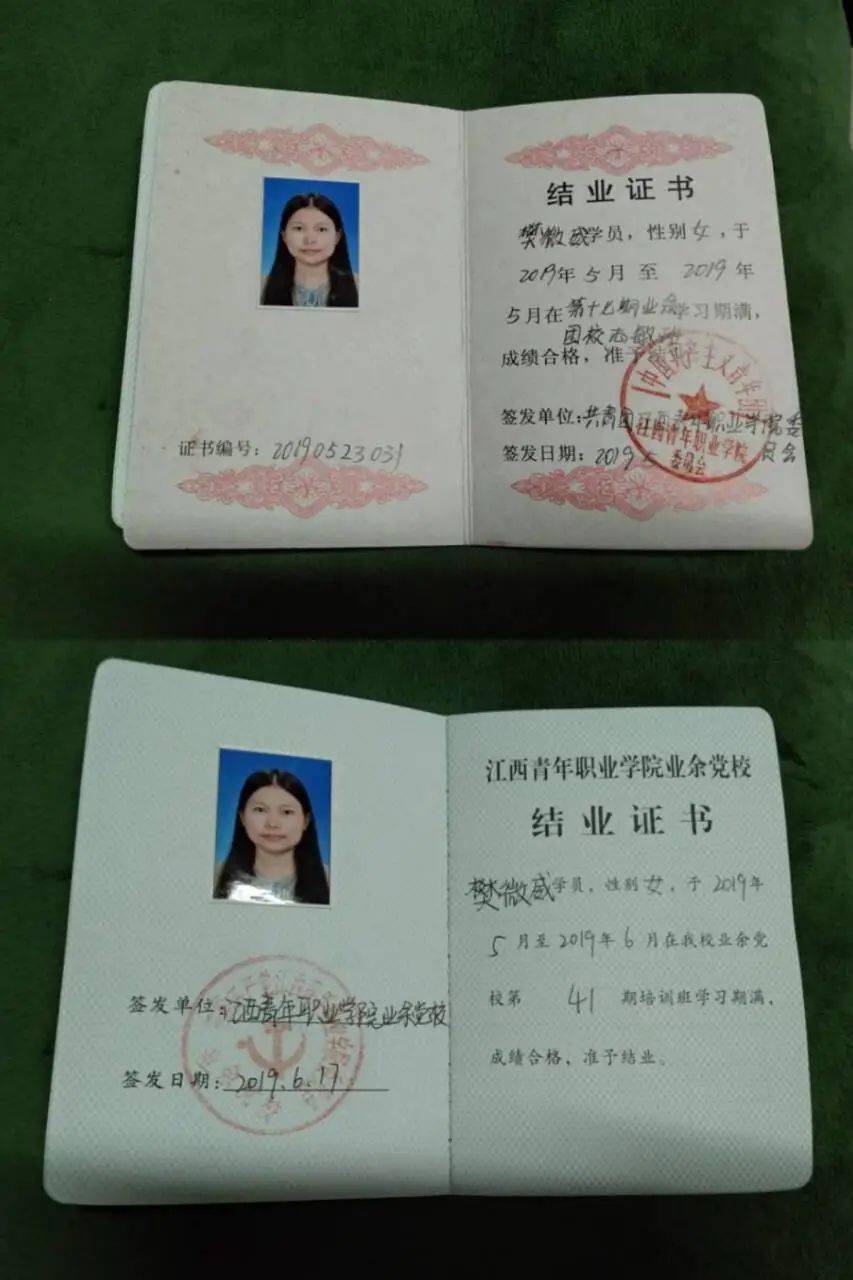 结业证书
樊微感学员，性别女，于
2019年5月至 2019年
5月在第十七期业余学习期满，
团校
成绩合格，准予结业
签发单位:共青团江西青年职业学院委
员会
签发日期: 2019
中国共产主义青年团
江西青年职业学院
委员会
证书编号: 2019052303
江西青年职业学院业余党校
结业证书
樊微感学员，性别女，于 2019年
5月至2019年6月在我校业余党
校第 41 期培训班学习期满，
成绩合格，准予结业。
签发单位:江西青年职业学院业余党校
签发日期: 2019.6.17